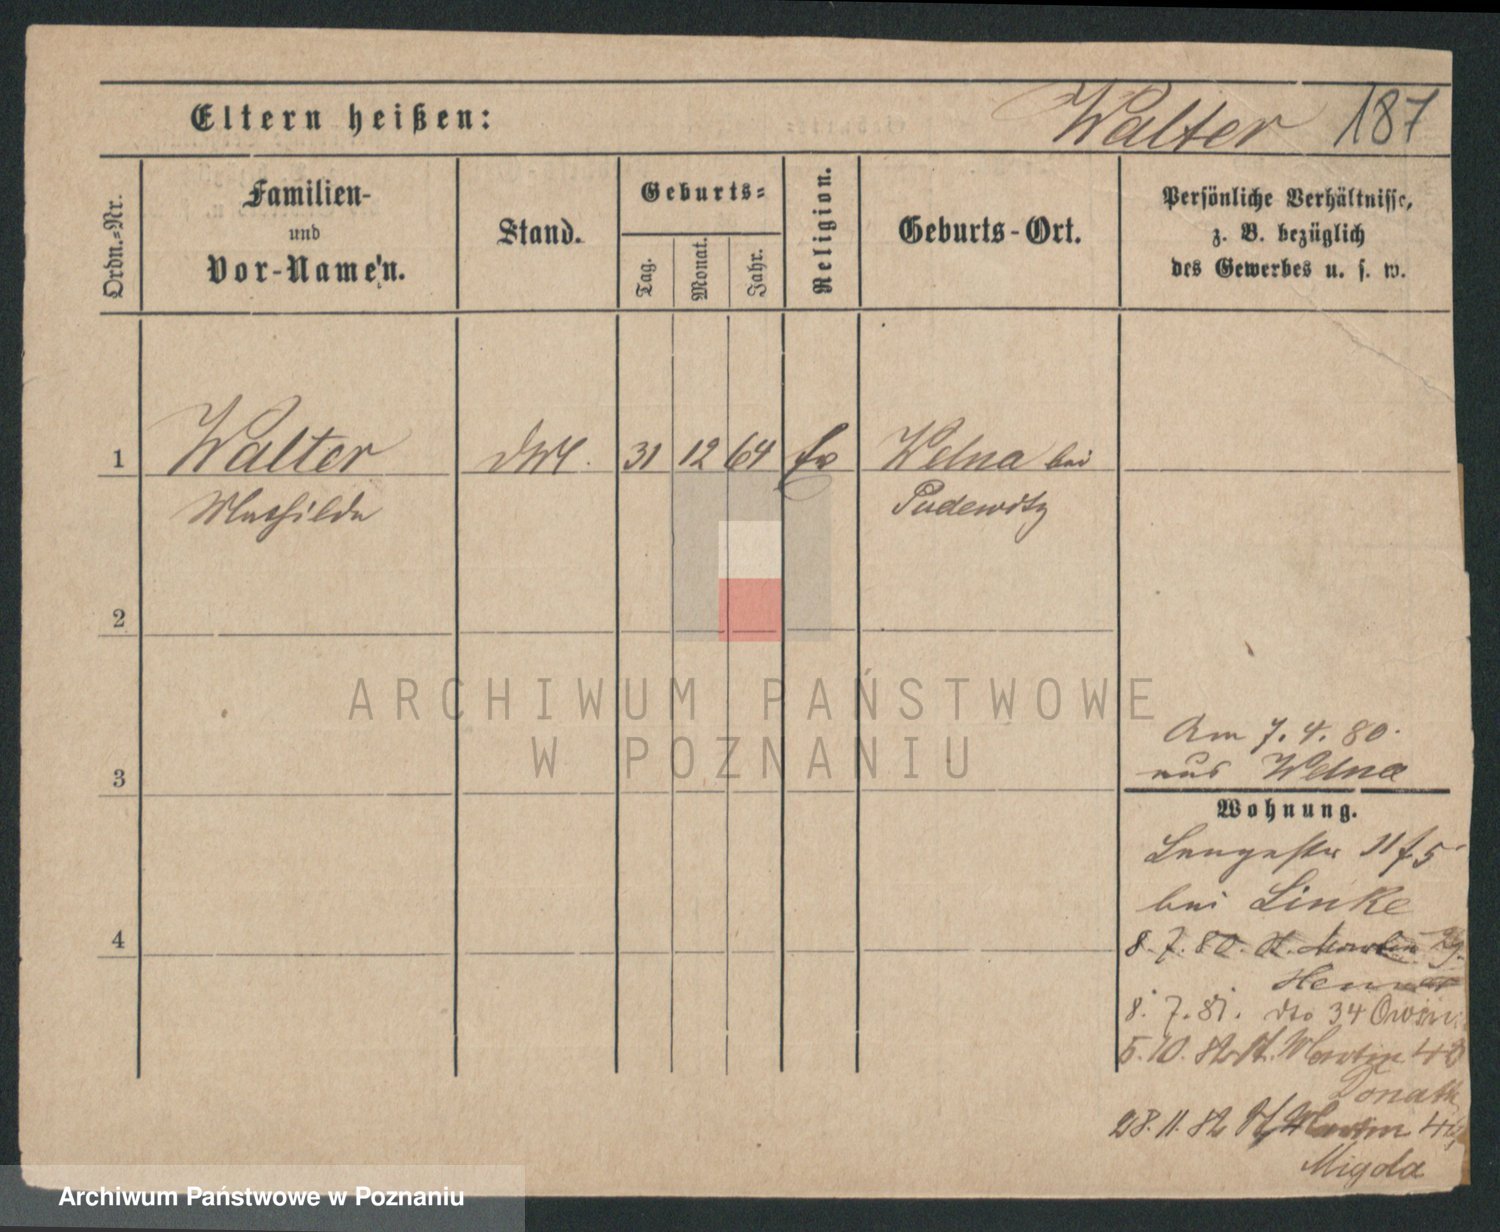 Eltern heißen:
Walter 187
Ordn.-Nr.
Familien-
und
Vor-Name'n.
Stand.
Geburts-
Tag.
Monat.
Jahr.
Religion.
Geburts-Ort.
Persönliche Verhältnisse,
z. B. bezüglich
des Gewerbes u. s. w.
1 Walter 31 12 64 Ev Welna bei
Mathilde Pudewitz
2
3
4
ARCHIWUM PAŃSTWOWE
W POZNANIU
Am 7. 4. 80.
aus Welna
Wohnung.
Langestr 11 f. 5
bei Linke
8. 7. 80. St. Martin
8. 7. 81. dto 34
5. 10. 82 St. Martin
Donath
28. 11. 82 St. Martin
Migda
Archiwum Państwowe w Poznaniu